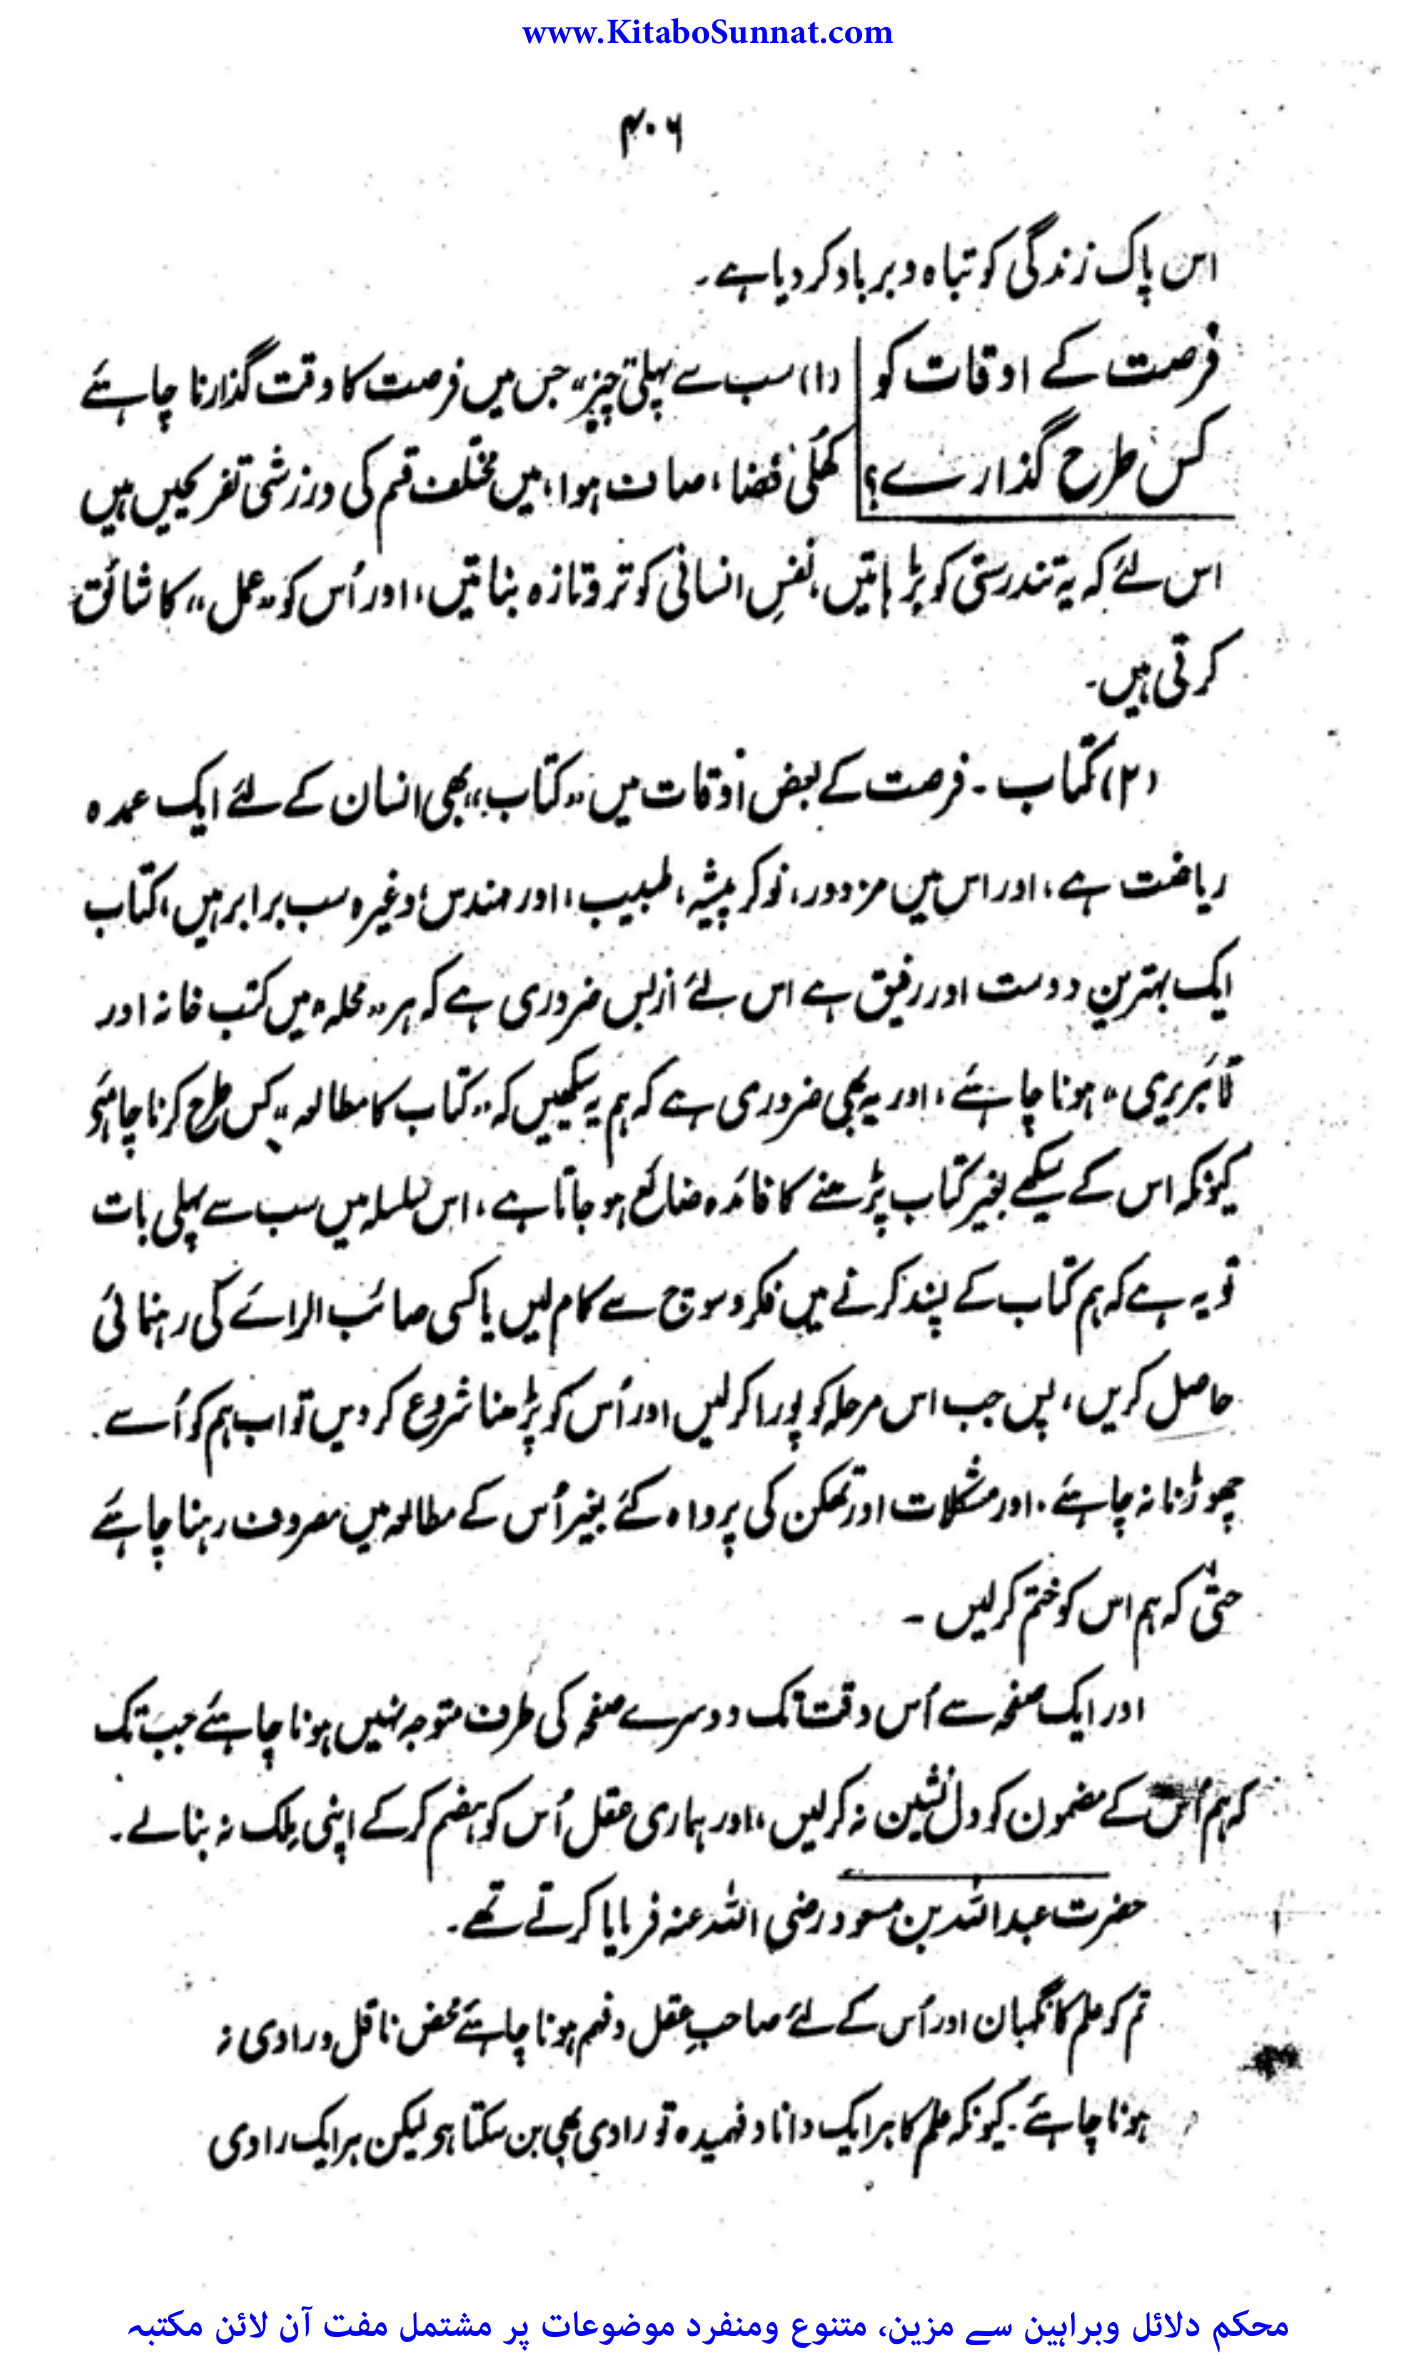 www.KitaboSunnat.com
۴۰۶
اس پاک زندگی کو تباہ و برباد کر دیا ہے۔
فرصت کے اوقات کو (۱) سب سے پہلی چیز، جس میں فرصت کا وقت گذارنا چاہئے
کس طرح گذارے؟ کھُلی فضا، صاف ہوا، میں مختلف قسم کی ورزشی تفریحیں ہیں
اس لئے کہ یہ تندرستی کو بڑہاتیں، نفسِ انسانی کو تروتازہ بناتیں، اور اُس کو "عمل" کا شائق
کرتی ہیں۔
(۲) کتاب ۔ فرصت کے بعض اوقات میں "کتاب" بھی انسان کے لئے ایک عمدہ
ریاضت ہے، اور اس میں مزدور، نوکر پیشہ، طبیب، اور مہندس وغیرہ سب برابر ہیں، کتاب
ایک بہترین دوست اور رفیق ہے اس لئے ازبس ضروری ہے کہ ہر "محلہ میں کتب خانہ اور
لائبریری" ہونا چاہئے، اور یہ بھی ضروری ہے کہ ہم یہ سیکھیں کہ "کتاب کا مطالعہ" کس طرح کرنا چاہئے
کیونکہ اس کے سیکھے بغیر کتاب پڑھنے کا فائدہ ضائع ہو جاتا ہے، اس سلسلہ میں سب سے پہلی بات
تو یہ ہے کہ ہم کتاب کے پسند کرنے میں فکر و سوچ سے کام لیں یا کسی صائب الرائے کی رہنمائی
حاصل کریں، پس جب اس مرحلہ کو پورا کر لیں اور اُس کو پڑھنا شروع کر دیں تو اب ہم کو اُسے
چھوڑنا نہ چاہئے۔ اور مشکلات اور تھکن کی پرواہ کئے بغیر اُس کے مطالعہ میں مصروف رہنا چاہئے
حتیٰ کہ ہم اس کو ختم کر لیں ۔
اور ایک صفحہ سے اُس وقت تک دوسرے صفحہ کی طرف متوجہ نہیں ہونا چاہئے جب تک
کہ ہم اُس کے مضمون کو دل نشین نہ کر لیں، اور ہماری عقل اُس کو ہضم کر کے اپنی مِلک نہ بنالے۔
حضرت عبداللہ بن مسعود رضی اللہ عنہ فرمایا کرتے تھے۔
تم کو علم کا نگہبان اور اُس کے لئے صاحبِ عقل و فہم ہونا چاہئے محض ناقل و راوی نہ
ہونا چاہئے۔ کیونکہ علم کا ہر ایک دانا و فہمیدہ تو راوی بھی بن سکتا ہو لیکن ہر ایک راوی
محکم دلائل وبراہین سے مزین، متنوع ومنفرد موضوعات پر مشتمل مفت آن لائن مکتبہ